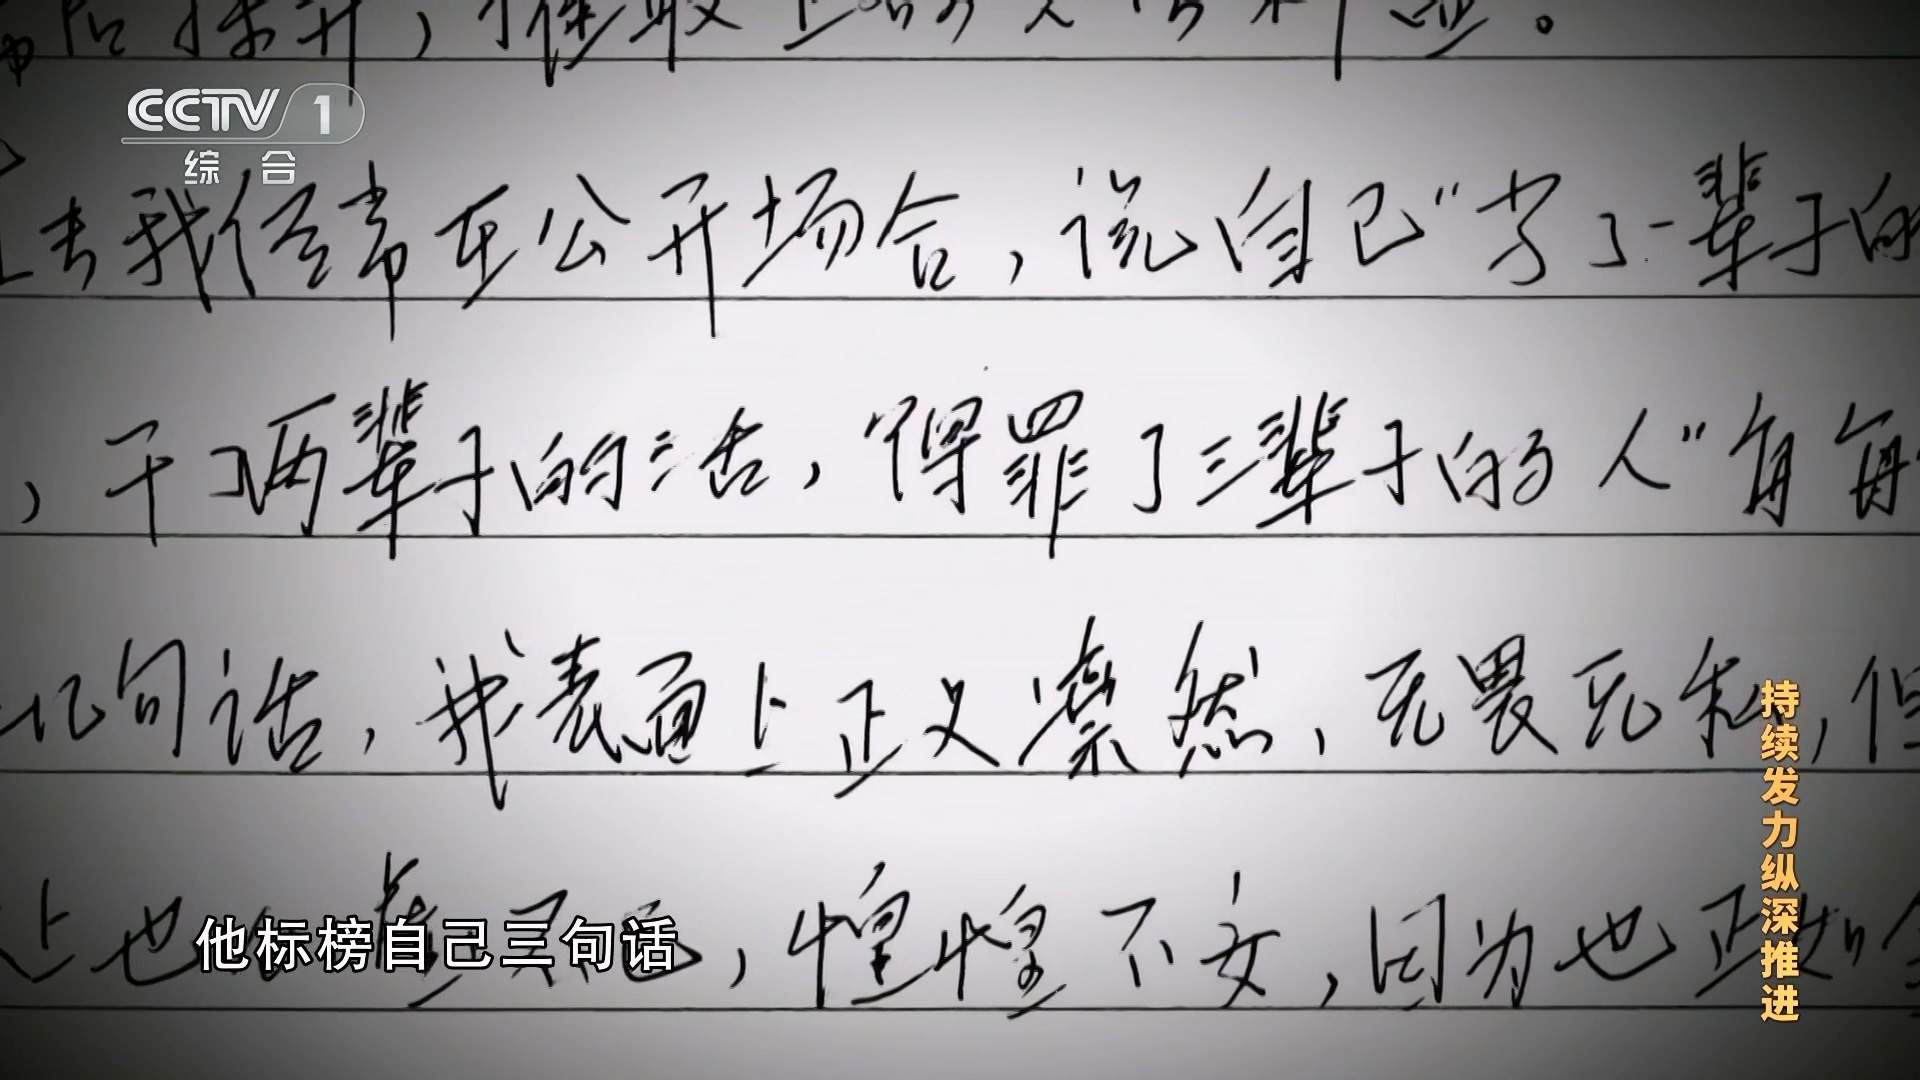 CCTV 1
综合
去我经常在公开场合，说自己“当了一辈子的
，干了两辈子的活，得罪了三辈子的人”每每
几句话，我表面上正义凛然，无畏无私，但
上也
，惶惶不安，因为也正如
他标榜自己三句话
持续发力纵深推进